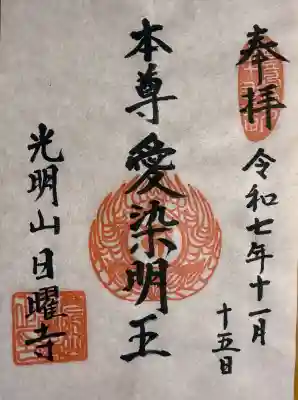 奉拝
令和七年十一月
十五日
本尊 愛染明王
光明山 日曜寺